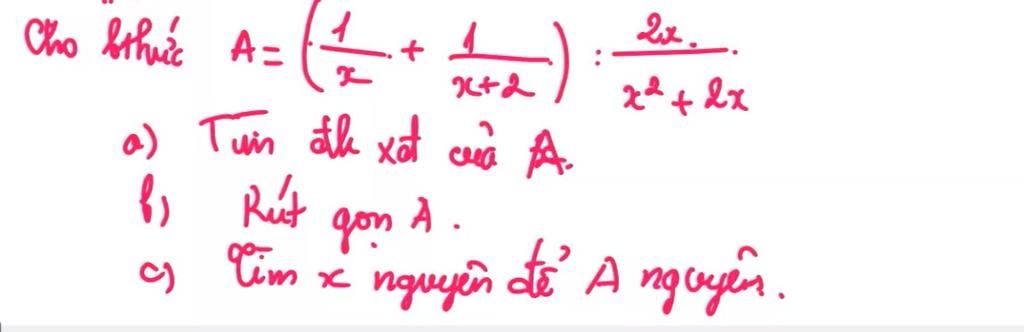 Cho bthức A = (1/x + 1/(x+2)) : 2x/(x² + 2x)
a) Tìm đk xđ của A.
b) Rút gọn A.
c) Tìm x nguyên để A nguyên.